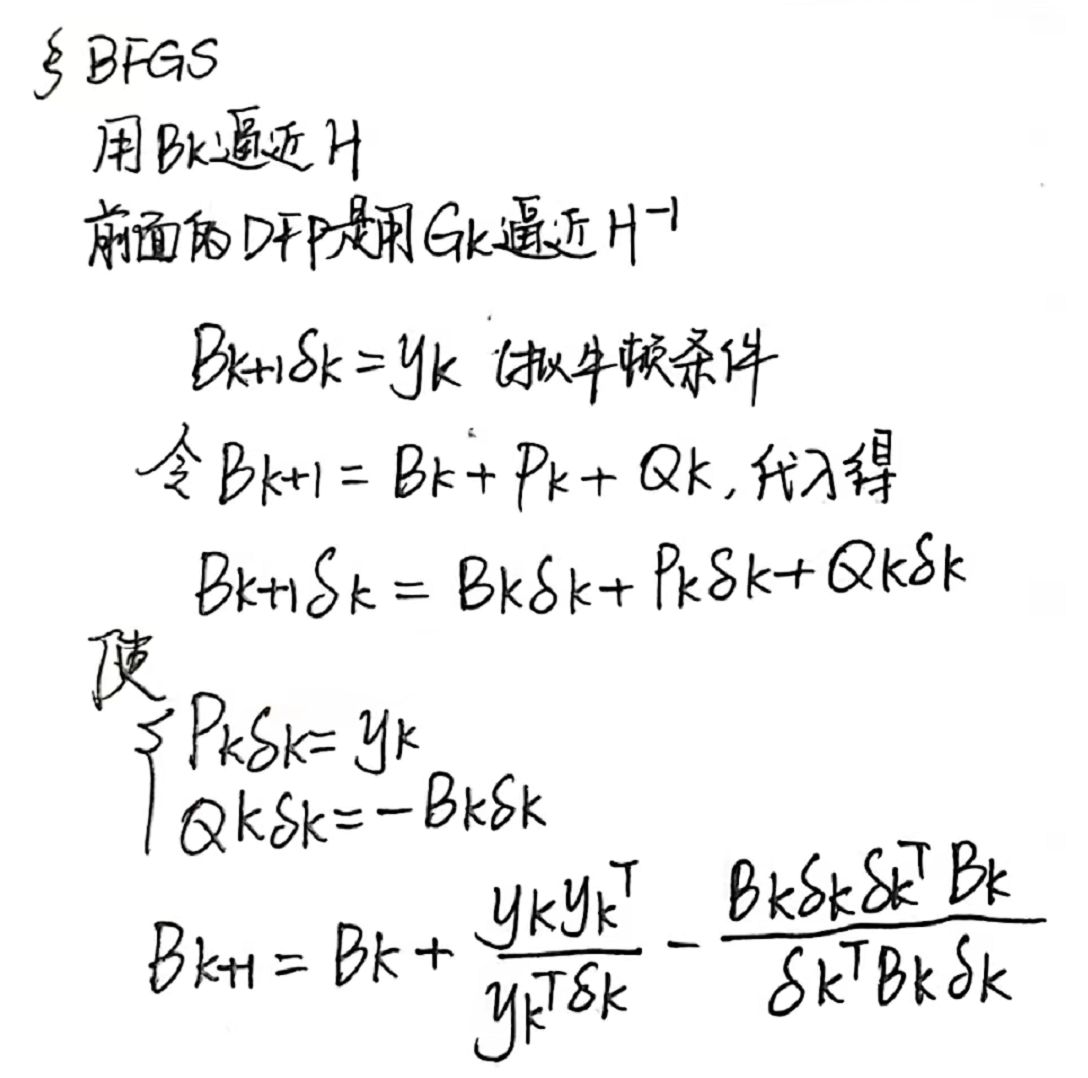 § BFGS
用Bk逼近H
前面的DFP是用Gk逼近H⁻¹
Bk+1δk=yk 拟牛顿条件
令Bk+1=Bk+Pk+Qk,代入得
Bk+1δk=Bkδk+Pkδk+Qkδk
使
{Pkδk=yk
Qkδk=-Bkδk
Bk+1=Bk+ykykᵀ/ykᵀδk-BkδkδkᵀBk/δkᵀBkδk